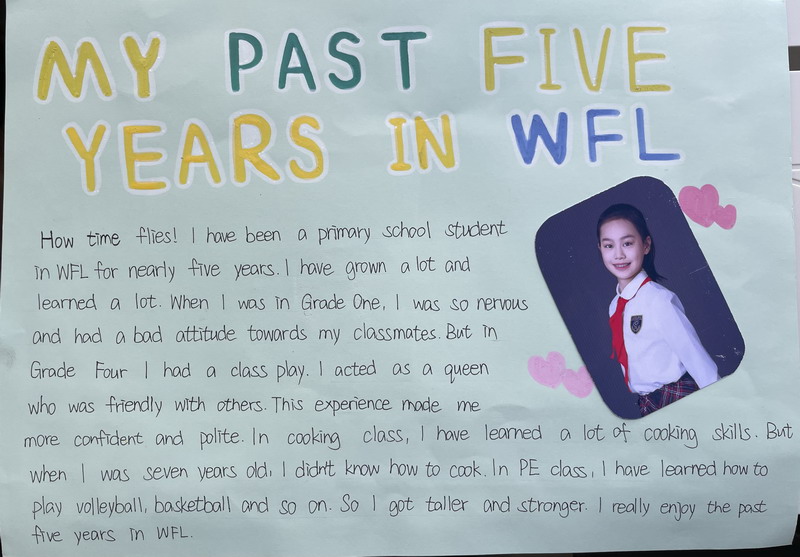 MY PAST FIVE
YEARS IN WFL
How time flies! I have been a primary school student
in WFL for nearly five years. I have grown a lot and
learned a lot. When I was in Grade One, I was so nervous
and had a bad attitude towards my classmates. But in
Grade Four I had a class play. I acted as a queen
who was friendly with others. This experience made me
more confident and polite. In cooking class, I have learned a lot of cooking skills. But
when I was seven years old, I didn't know how to cook. In PE class, I have learned how to
play volleyball, basketball and so on. So I got taller and stronger. I really enjoy the past
five years in WFL.